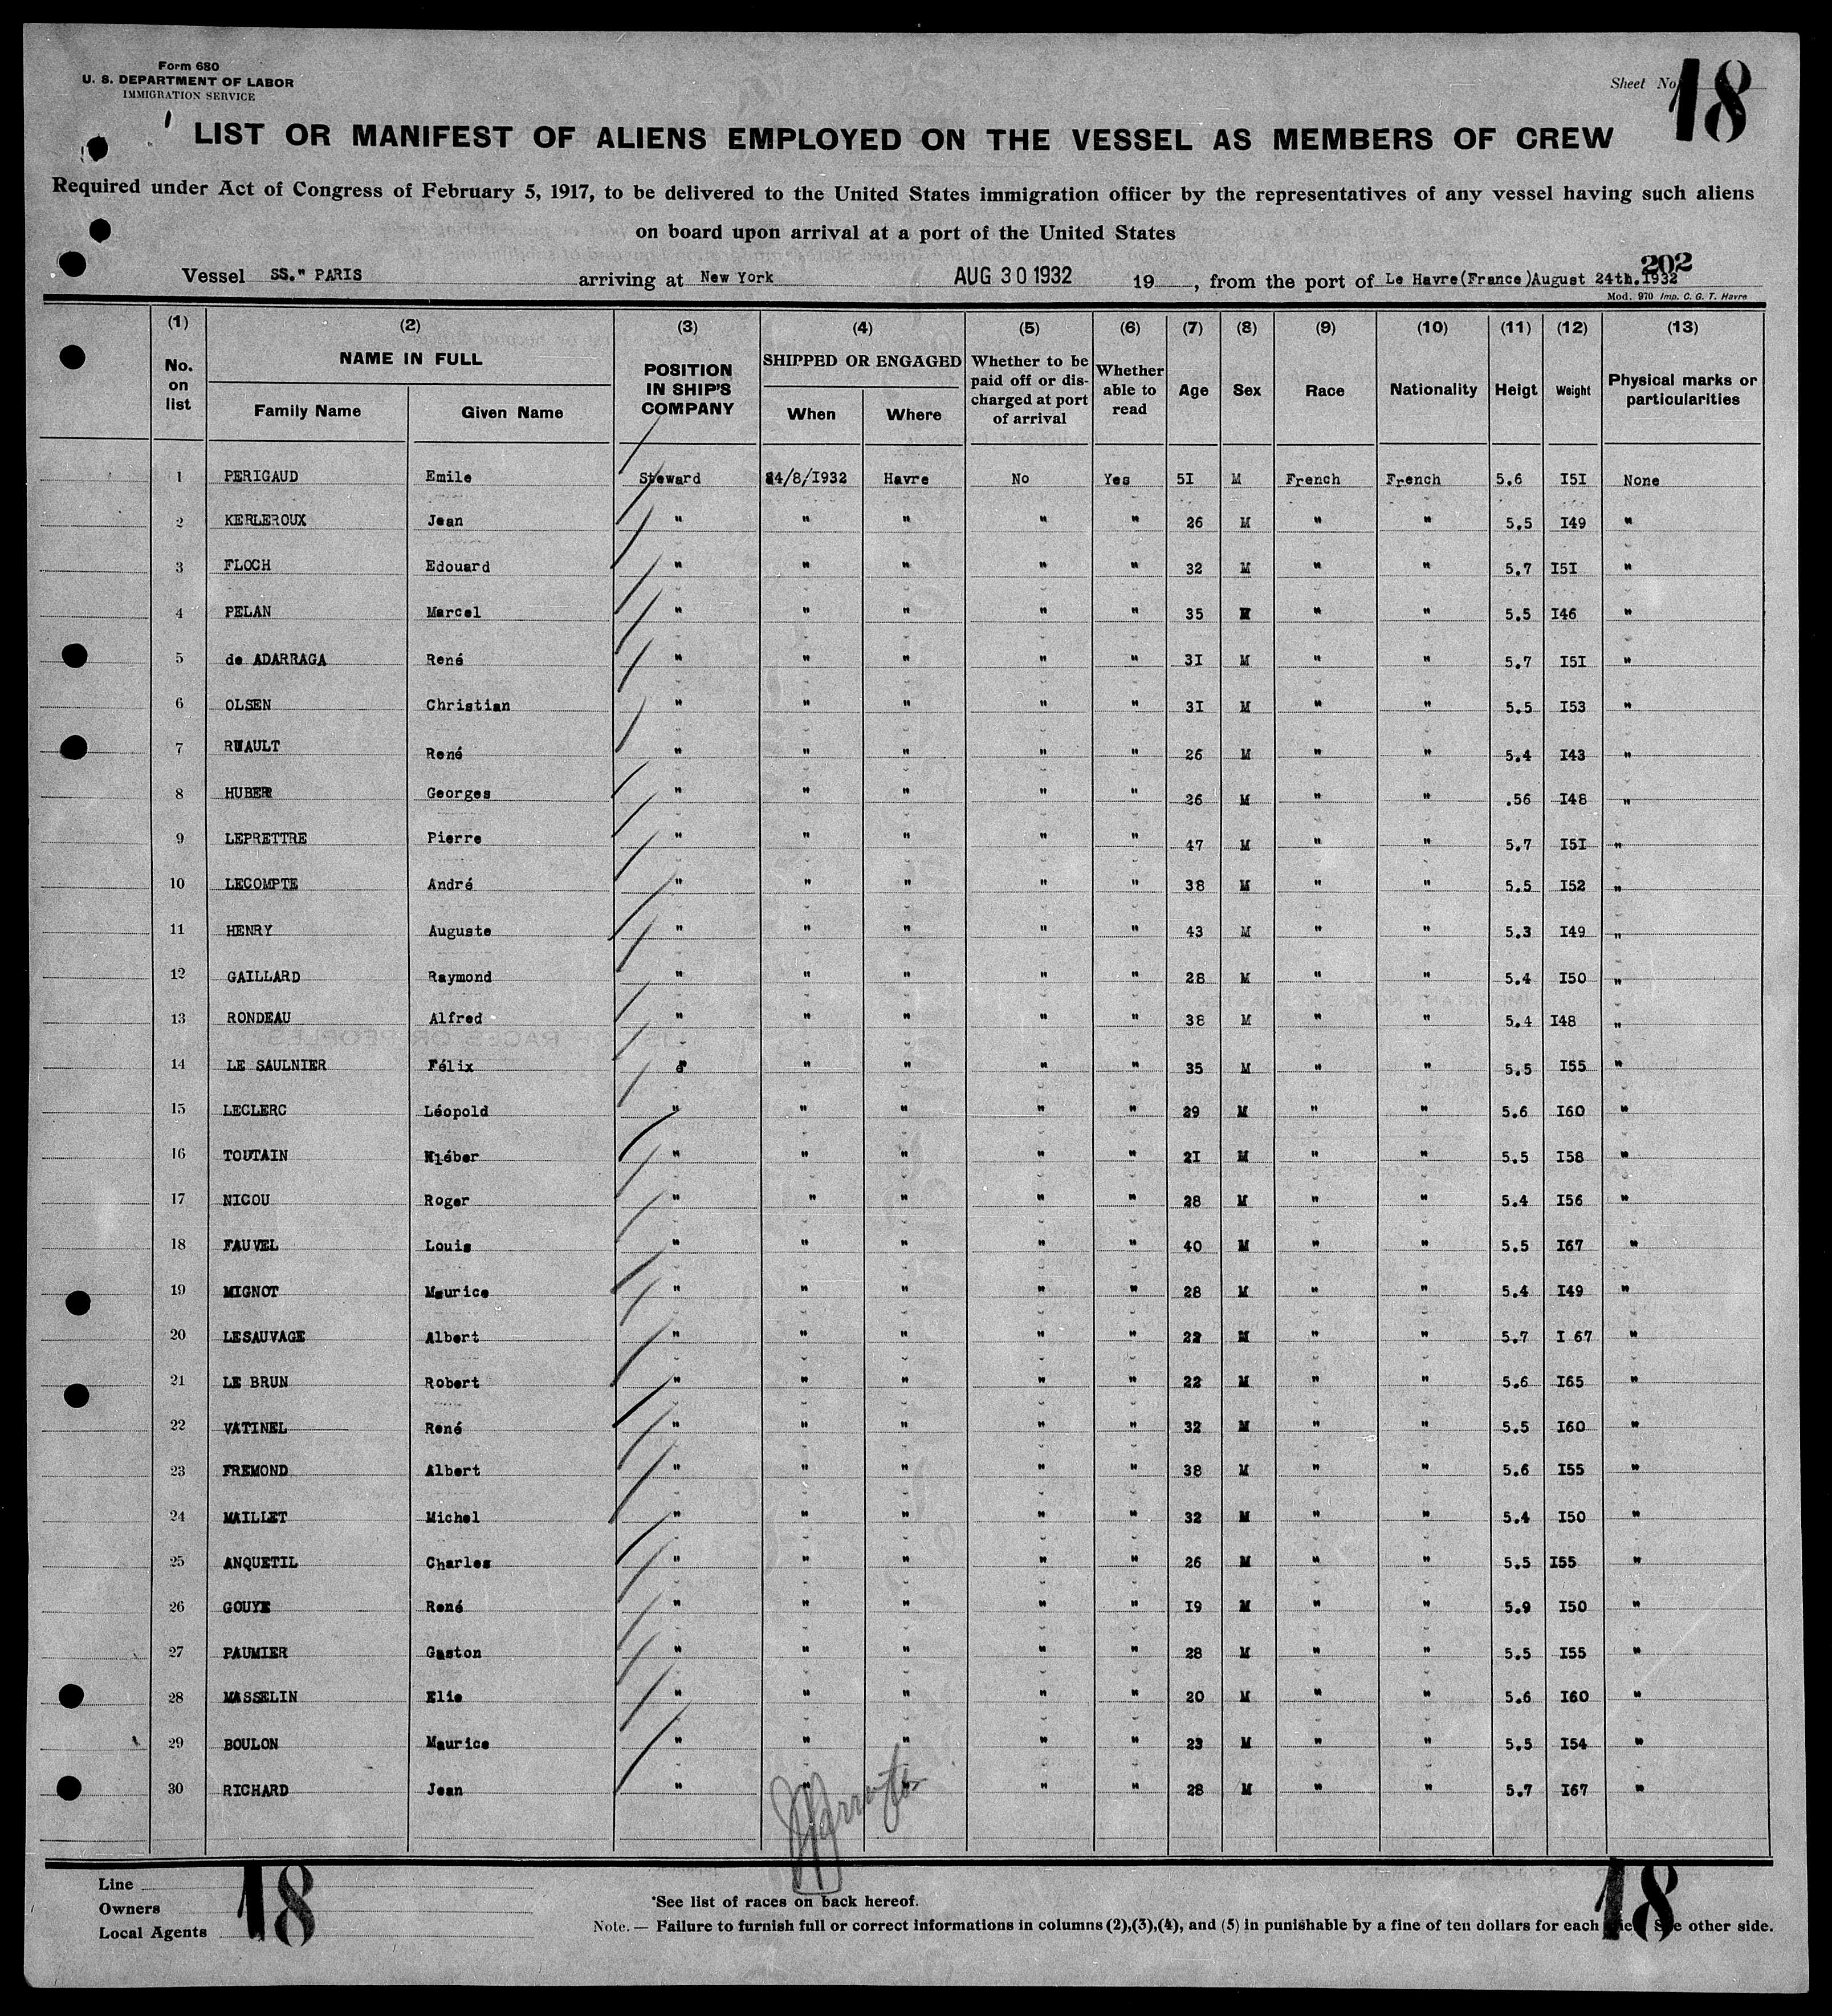 Form 680
U. S. DEPARTMENT OF LABOR
IMMIGRATION SERVICE
Sheet No 18
LIST OR MANIFEST OF ALIENS EMPLOYED ON THE VESSEL AS MEMBERS OF CREW
Required under Act of Congress of February 5, 1917, to be delivered to the United States immigration officer by the representatives of any vessel having such aliens
on board upon arrival at a port of the United States
202
Vessel SS." PARIS arriving at New York AUG 30 1932 19 , from the port of Le Havre(France)August 24th.1932
Mod. 970 Imp. C. G. T. Havre
(1) (2) (3) (4) (5) (6) (7) (8) (9) (10) (11) (12) (13)
No. on list NAME IN FULL Family Name Given Name POSITION IN SHIP'S COMPANY SHIPPED OR ENGAGED When Where Whether to be paid off or discharged at port of arrival Whether able to read Age Sex Race Nationality Heigt Weight Physical marks or particularities
1 PERIGAUD Emile Steward 24/8/I932 Havre No Yes 5I M French French 5.6 I5I None
2 KERLEROUX Jean " " " " " 26 M " " 5.5 I49 "
3 FLOCH Edouard " " " " " 32 M " " 5.7 I5I "
4 PELAN Marcel " " " " " 35 M " " 5.5 I46 "
5 de ADARRAGA René " " " " " 3I M " " 5.7 I5I "
6 OLSEN Christian " " " " " 3I M " " 5.5 I53 "
7 RUAULT René " " " " " 26 M " " 5.4 I43 "
8 HUBER Georges " " " " " 26 M " " .56 I48 "
9 LEPRETTRE Pierre " " " " " 47 M " " 5.7 I5I "
10 LECOMPTE André " " " " " 38 M " " 5.5 I52 "
11 HENRY Auguste " " " " " 43 M " " 5.3 I49 "
12 GAILLARD Raymond " " " " " 28 M " " 5.4 I50 "
13 RONDEAU Alfred " " " " " 38 M " " 5.4 I48 "
14 LE SAULNIER Félix " " " " " 35 M " " 5.5 I55 "
15 LECLERC Léopold " " " " " 29 M " " 5.6 I60 "
16 TOUTAIN Kléber " " " " " 2I M " " 5.5 I58 "
17 NICOU Roger " " " " " 28 M " " 5.4 I56 "
18 FAUVEL Louis " " " " " 40 M " " 5.5 I67 "
19 MIGNOT Maurice " " " " " 28 M " " 5.4 I49 "
20 LESAUVAGE Albert " " " " " 22 M " " 5.7 I 67 "
21 LE BRUN Robert " " " " " 22 M " " 5.6 I65 "
22 VATINEL René " " " " " 32 M " " 5.5 I60 "
23 FREMOND Albert " " " " " 38 M " " 5.6 I55 "
24 MAILLET Michel " " " " " 32 M " " 5.4 I50 "
25 ANQUETIL Charles " " " " " 26 M " " 5.5 I55 "
26 GOUYE René " " " " " I9 M " " 5.9 I50 "
27 PAUMIER Gaston " " " " " 28 M " " 5.5 I55 "
28 MASSELIN Elie " " " " " 20 M " " 5.6 I60 "
29 BOULON Maurice " " " " " 23 M " " 5.5 I54 "
30 RICHARD Jean " " " " " 28 M " " 5.7 I67 "
Line
Owners
Local Agents
18
18
*See list of races on back hereof.
Note. — Failure to furnish full or correct informations in columns (2),(3),(4), and (5) in punishable by a fine of ten dollars for each other side.